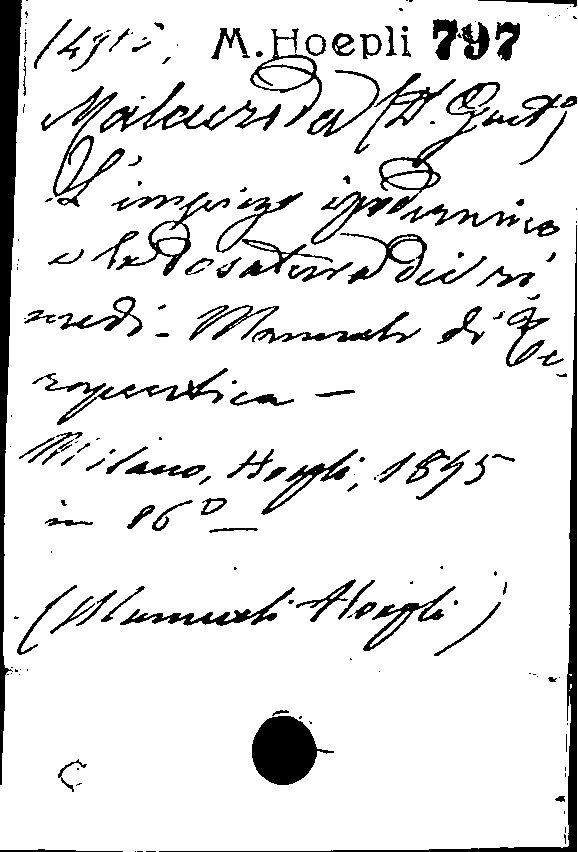 M. Hoepli 797
Malacrida (D. Gust.)
L'impiego ipodermico
e la dosatura dei ri
medi - Manuale di Te
rapeutica -
Milano, Hoepli, 1895
in 16°
(Manuali Hoepli)
C